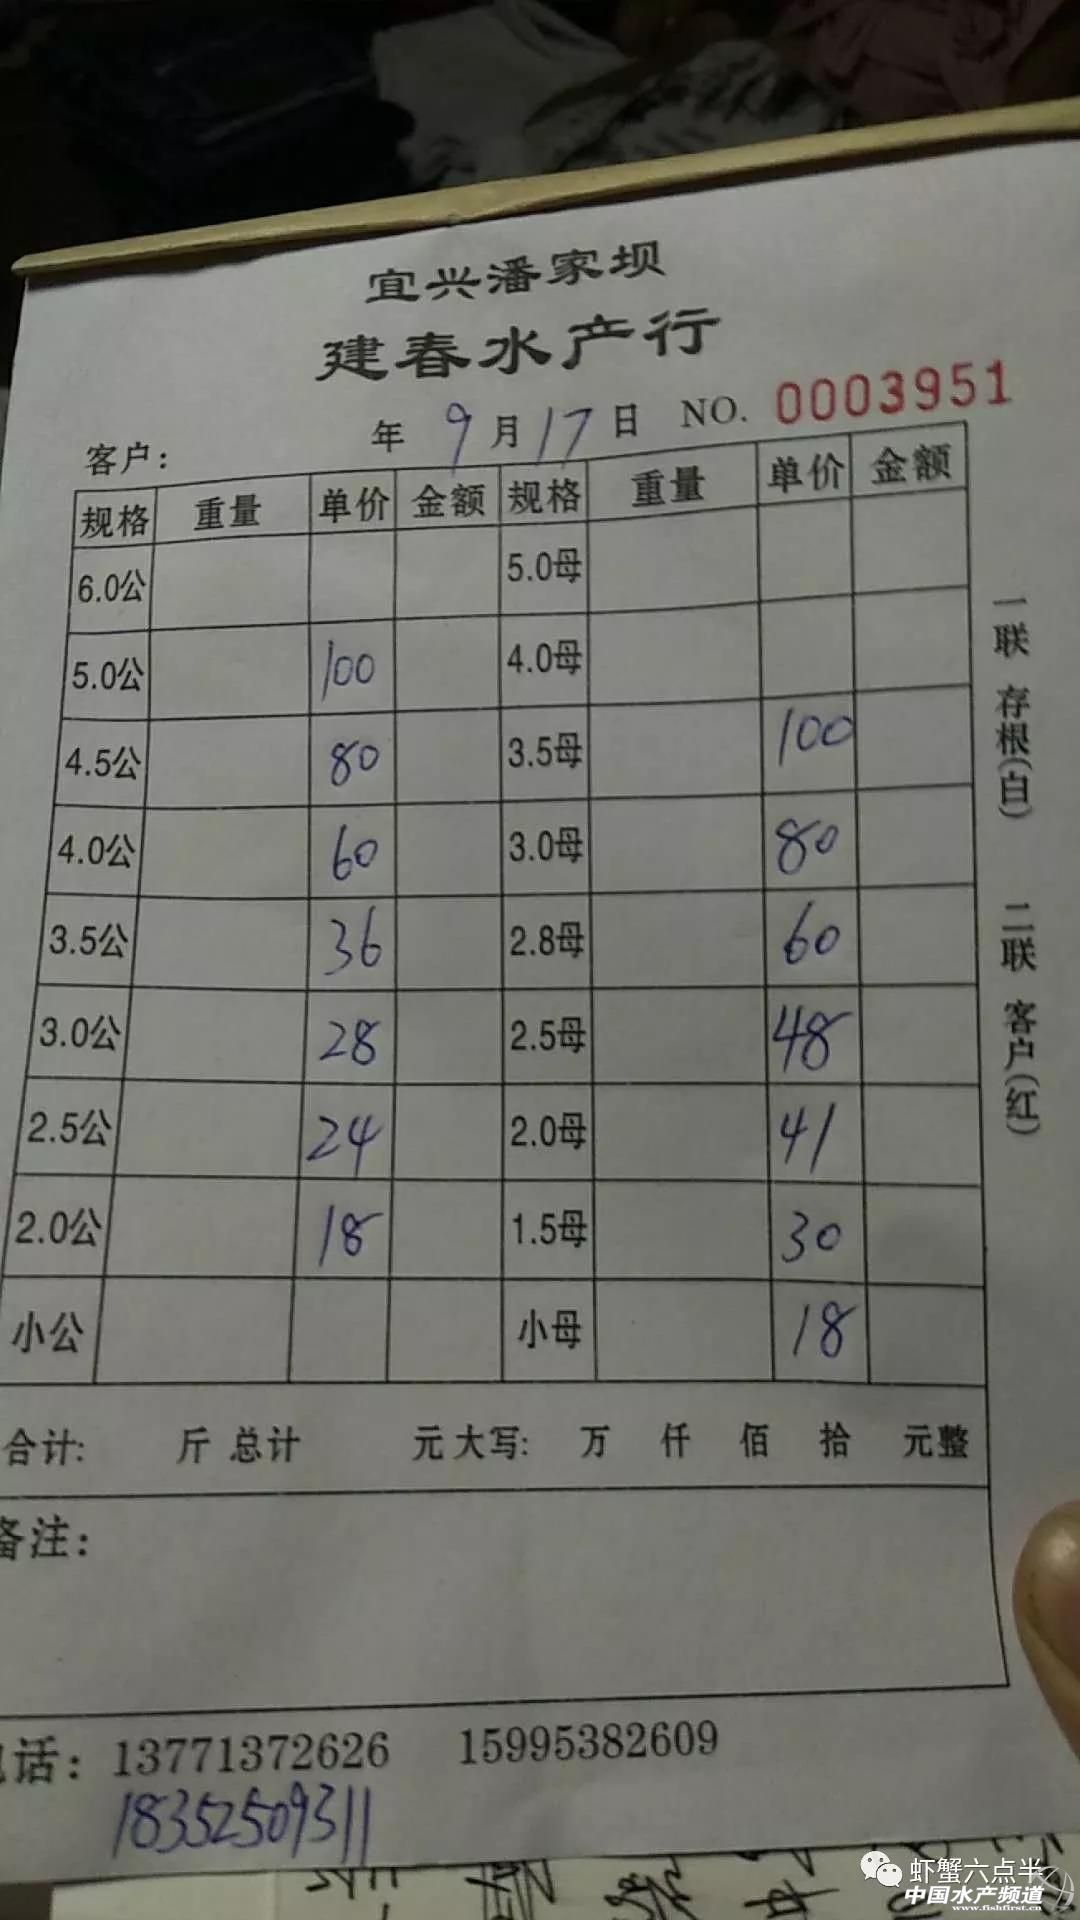 宜兴潘家坝
建春水产行
年 9 月 17 日 NO. 0003951
客户：
规格 重量 单价 金额 规格 重量 单价 金额
6.0公 5.0母
5.0公 100 4.0母
4.5公 80 3.5母 100
4.0公 60 3.0母 80
3.5公 36 2.8母 60
3.0公 28 2.5母 48
2.5公 24 2.0母 41
2.0公 18 1.5母 30
小公 小母 18
合计: 斤 总计 元 大写: 万 仟 佰 拾 元整
备注:
电话: 13771372626 15995382609
18352509311
一联 存根(白) 二联 客户(红)
虾蟹六点半
中国水产频道
www.fishfirst.cn